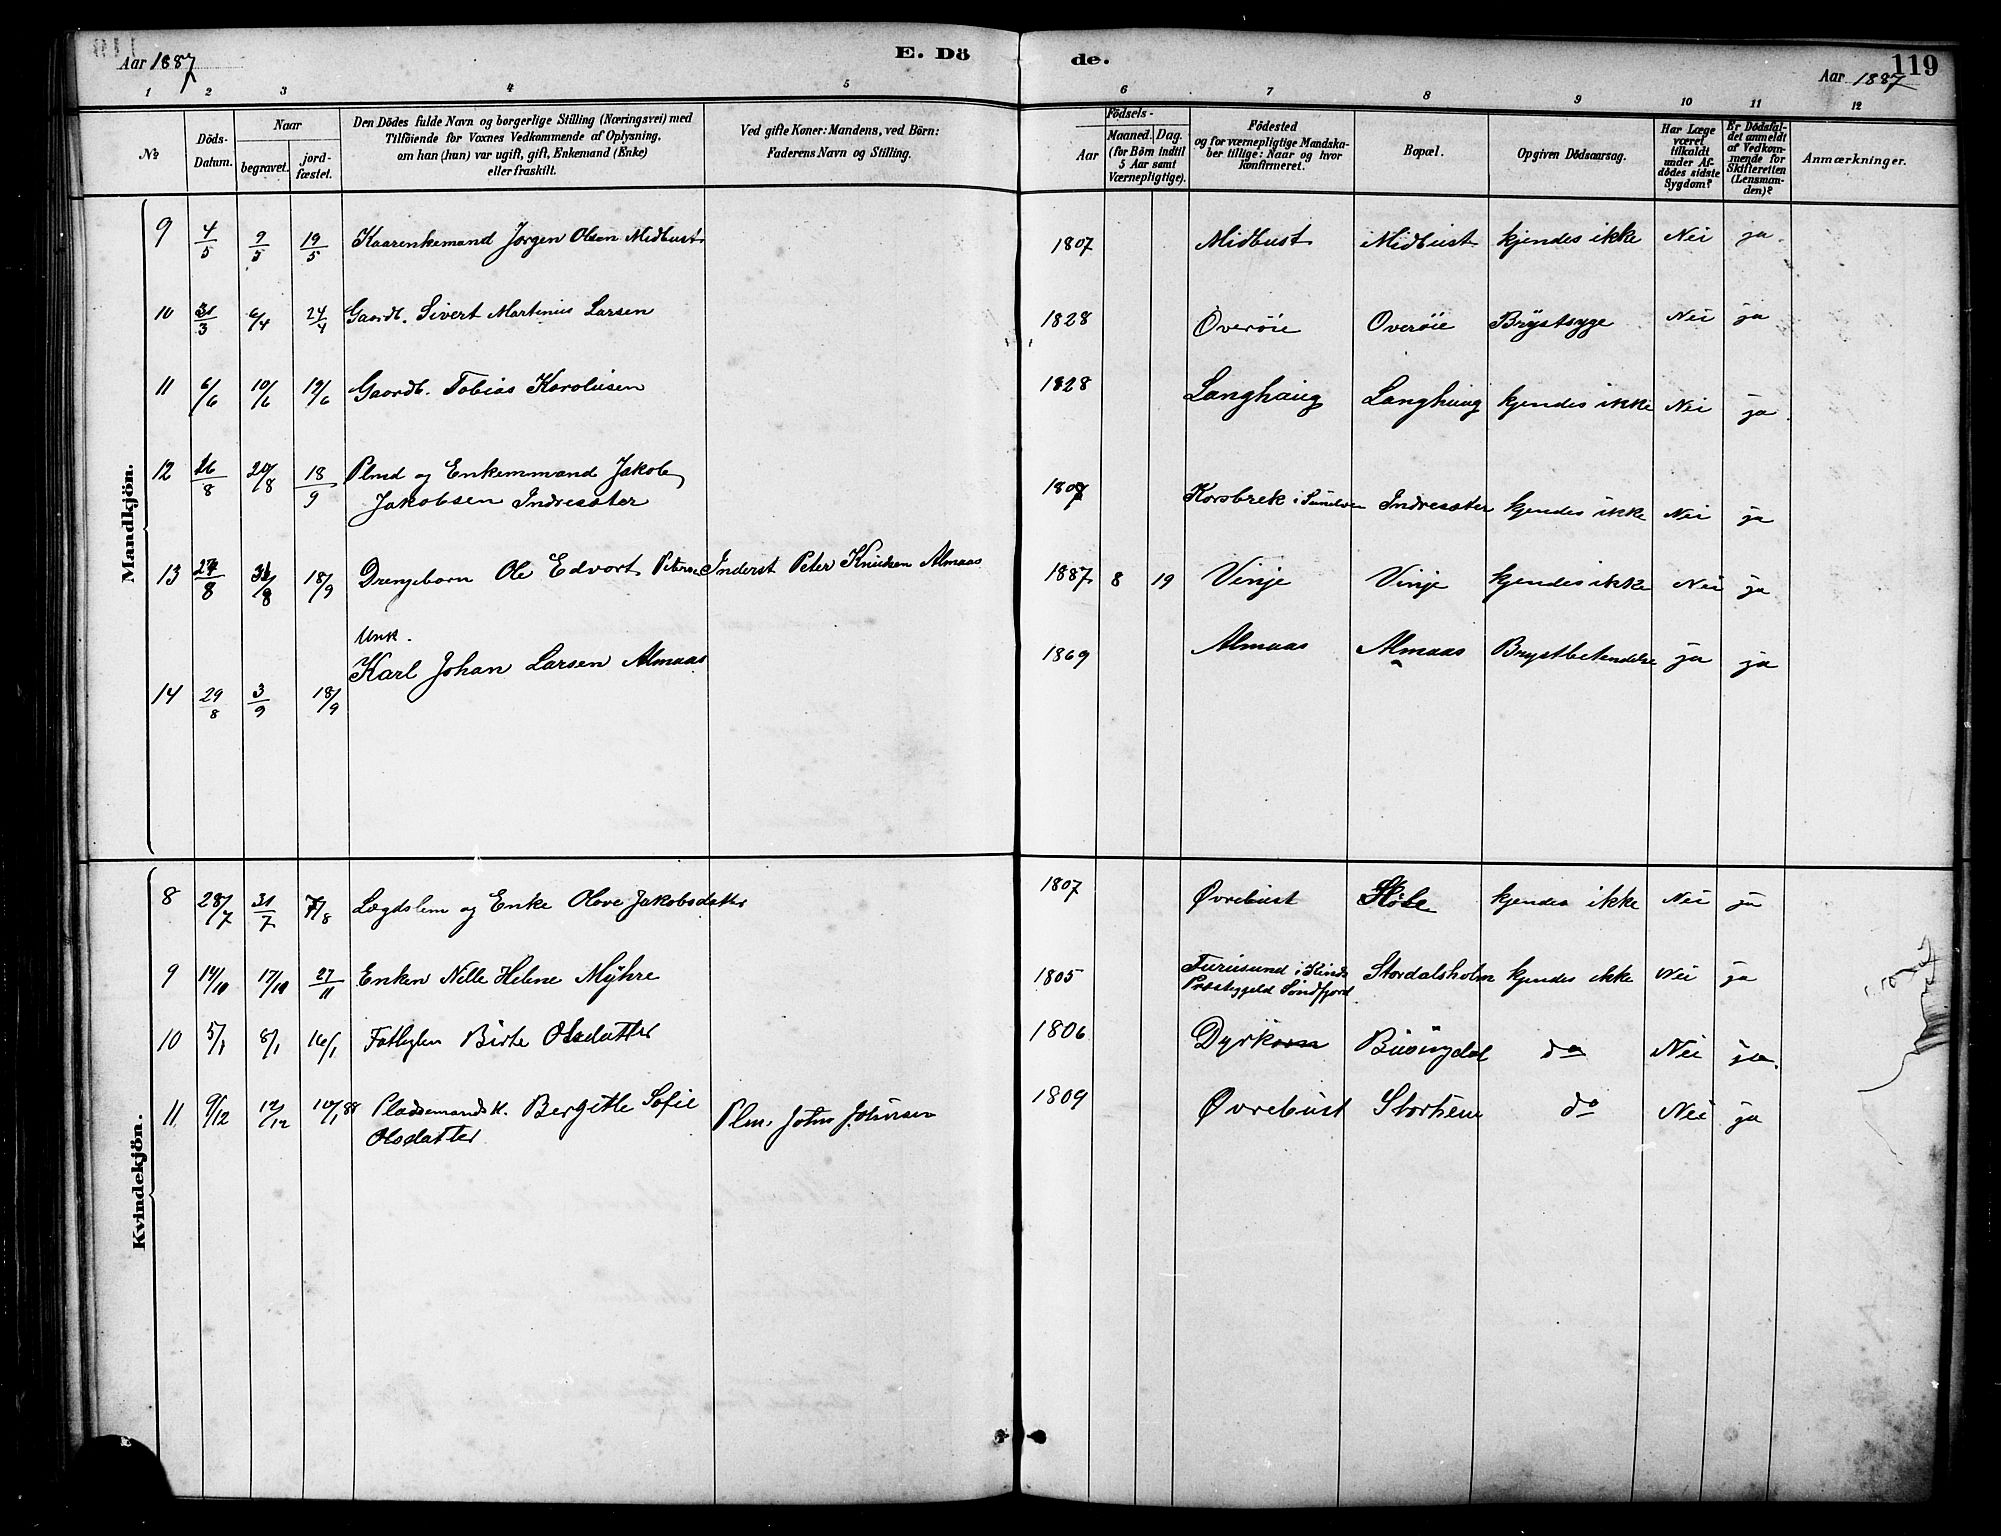 Aar 1887
E. Dö
de.
119
Aar 1887
1 2 3 4 5 6 7 8 9 10 11 12
No
Döds-
Datum.
Naar
begravet.
jord-
fæstet.
Den Dödes fulde Navn og borgerlige Stilling (Næringsvei) med
Tilföiende for Voxnes Vedkommende af Oplysning,
om han (hun) var ugift, gift, Enkemand (Enke)
eller fraskilt.
Ved gifte Koner: Mandens, ved Börn:
Faderens Navn og Stilling.
Födsels-
Aar
Maaned. Dag.
(for Börn indtil
5 Aar samt
Værnepligtige).
Födested
og for værnepligtige Mandska-
ber tillige: Naar og hvor
konfirmeret.
Bopæl.
Opgiven Dödsaarsag.
Har Læge
været
tilkaldt
under Af-
dödes sidste
Sygdom?
Er Dödsfal-
det anmeldt
af Vedkom-
mende for
Skifteretten
(Lensman-
den)?
Anmærkninger.
Mandkjön.
9 4/5 9/5 19/5 Kaarenkemand Jørgen Olsen Midbust 1807 Midbust Midbust kjendes ikke Nei ja
10 31/3 6/4 24/4 Gaardb. Sivert Martinus Larsen 1828 Overöie Overöie Brystsyge Nei ja
11 6/6 10/6 19/6 Gaardb. Tobias Karolusen 1828 Langhaug Langhaug kjendes ikke Nei ja
12 16/8 20/8 18/9 Plmd og Enkemmand Jakob
Jakobsen Indresæter 1807 Korsbrek i Sunelven Indresæter kjendes ikke Nei ja
13 27/8 31/8 18/9 Drengebarn Ole Edvart Petersen Inderst Peter Knudsen Almaas 1887 8 19 Vinje Vinje kjendes ikke Nei ja
Unk.
14 29/8 3/9 18/9 Karl Johan Larsen Almaas 1869 Almaas Almaas Brystbetændelse ja ja
Kvindekjön.
8 28/7 31/7 7/8 Lægdslem og Enke Olave Jakobsdatter 1807 Øvrebust kjendes ikke Nei ja
9 14/10 17/10 27/11 Enken Nille Helene Myhre 1805 Furusund i Kinds
Præstegjeld Søndfjord Stordalsholm kjendes ikke Nei ja
10 5/1 8/1 16/1 Fattiglem Birte Olsdatter 1806 Dyrkorn Busengdal do Nei ja
11 9/12 12/12 10/1 88 Pladsemandsk. Bergitte Sofie
Olsdatter Plm. John Johnsen 1809 Øvrebust Storheim do Nei ja